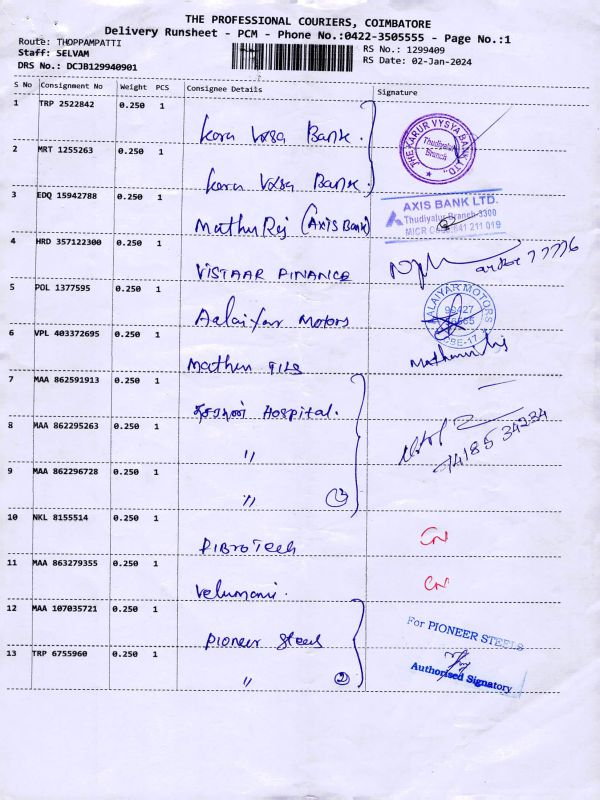 THE PROFESSIONAL COURIERS, COIMBATORE
Delivery Runsheet - PCM - Phone No.:0422-3505555 - Page No.:1
Route: THOPPAMPATTI
RS No.: 1299409
Staff: SELVAM
RS Date: 02-Jan-2024
DRS No.: DCJB129940901
S No Consignment No Weight PCS Consignee Details Signature
1 TRP 2522842 0.250 1
Karu Vysa Bank.
THE KARUR VYSYA BANK LTD.
Thudiyalur Branch
2 MRT 1255263 0.250 1
Karu Vysa Bank.
3 EDQ 15942788 0.250 1
Mathu Raj (AXIS Bank)
AXIS BANK LTD.
Thudiyalur Branch-3300
MICR Code:641 211 019
4 HRD 357122300 0.250 1
VISTAAR FINANCE
5 POL 1377595 0.250 1
Aalaiyar Motors
AALAIYAR MOTORS
CBE-17
6 VPL 403372695 0.250 1
Mathen TILS
7 MAA 862591913 0.250 1
Hospital.
8 MAA 862295263 0.250 1
"
74185 34234
9 MAA 862296728 0.250 1
" 3
10 NKL 8155514 0.250 1
PIBROTECH
CN
11 MAA 863279355 0.250 1
Velumani.
CN
12 MAA 107035721 0.250 1
Pioneer Steels
For PIONEER STEELS
13 TRP 6755960 0.250 1
" 2
Authorised Signatory